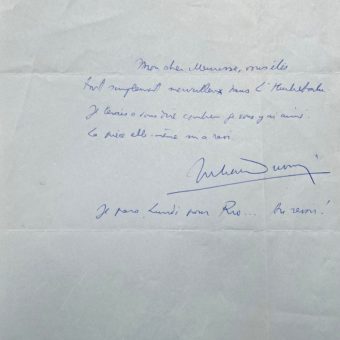 Mon cher Meurisse, vous êtes
tout simplement merveilleux dans L'Hurluberlu
Je tenais à vous dire combien je vous y ai aimé.
La pièce elle-même m'a ravi.
Julien Duvivier
Je pars Lundi pour Rio... Au revoir!